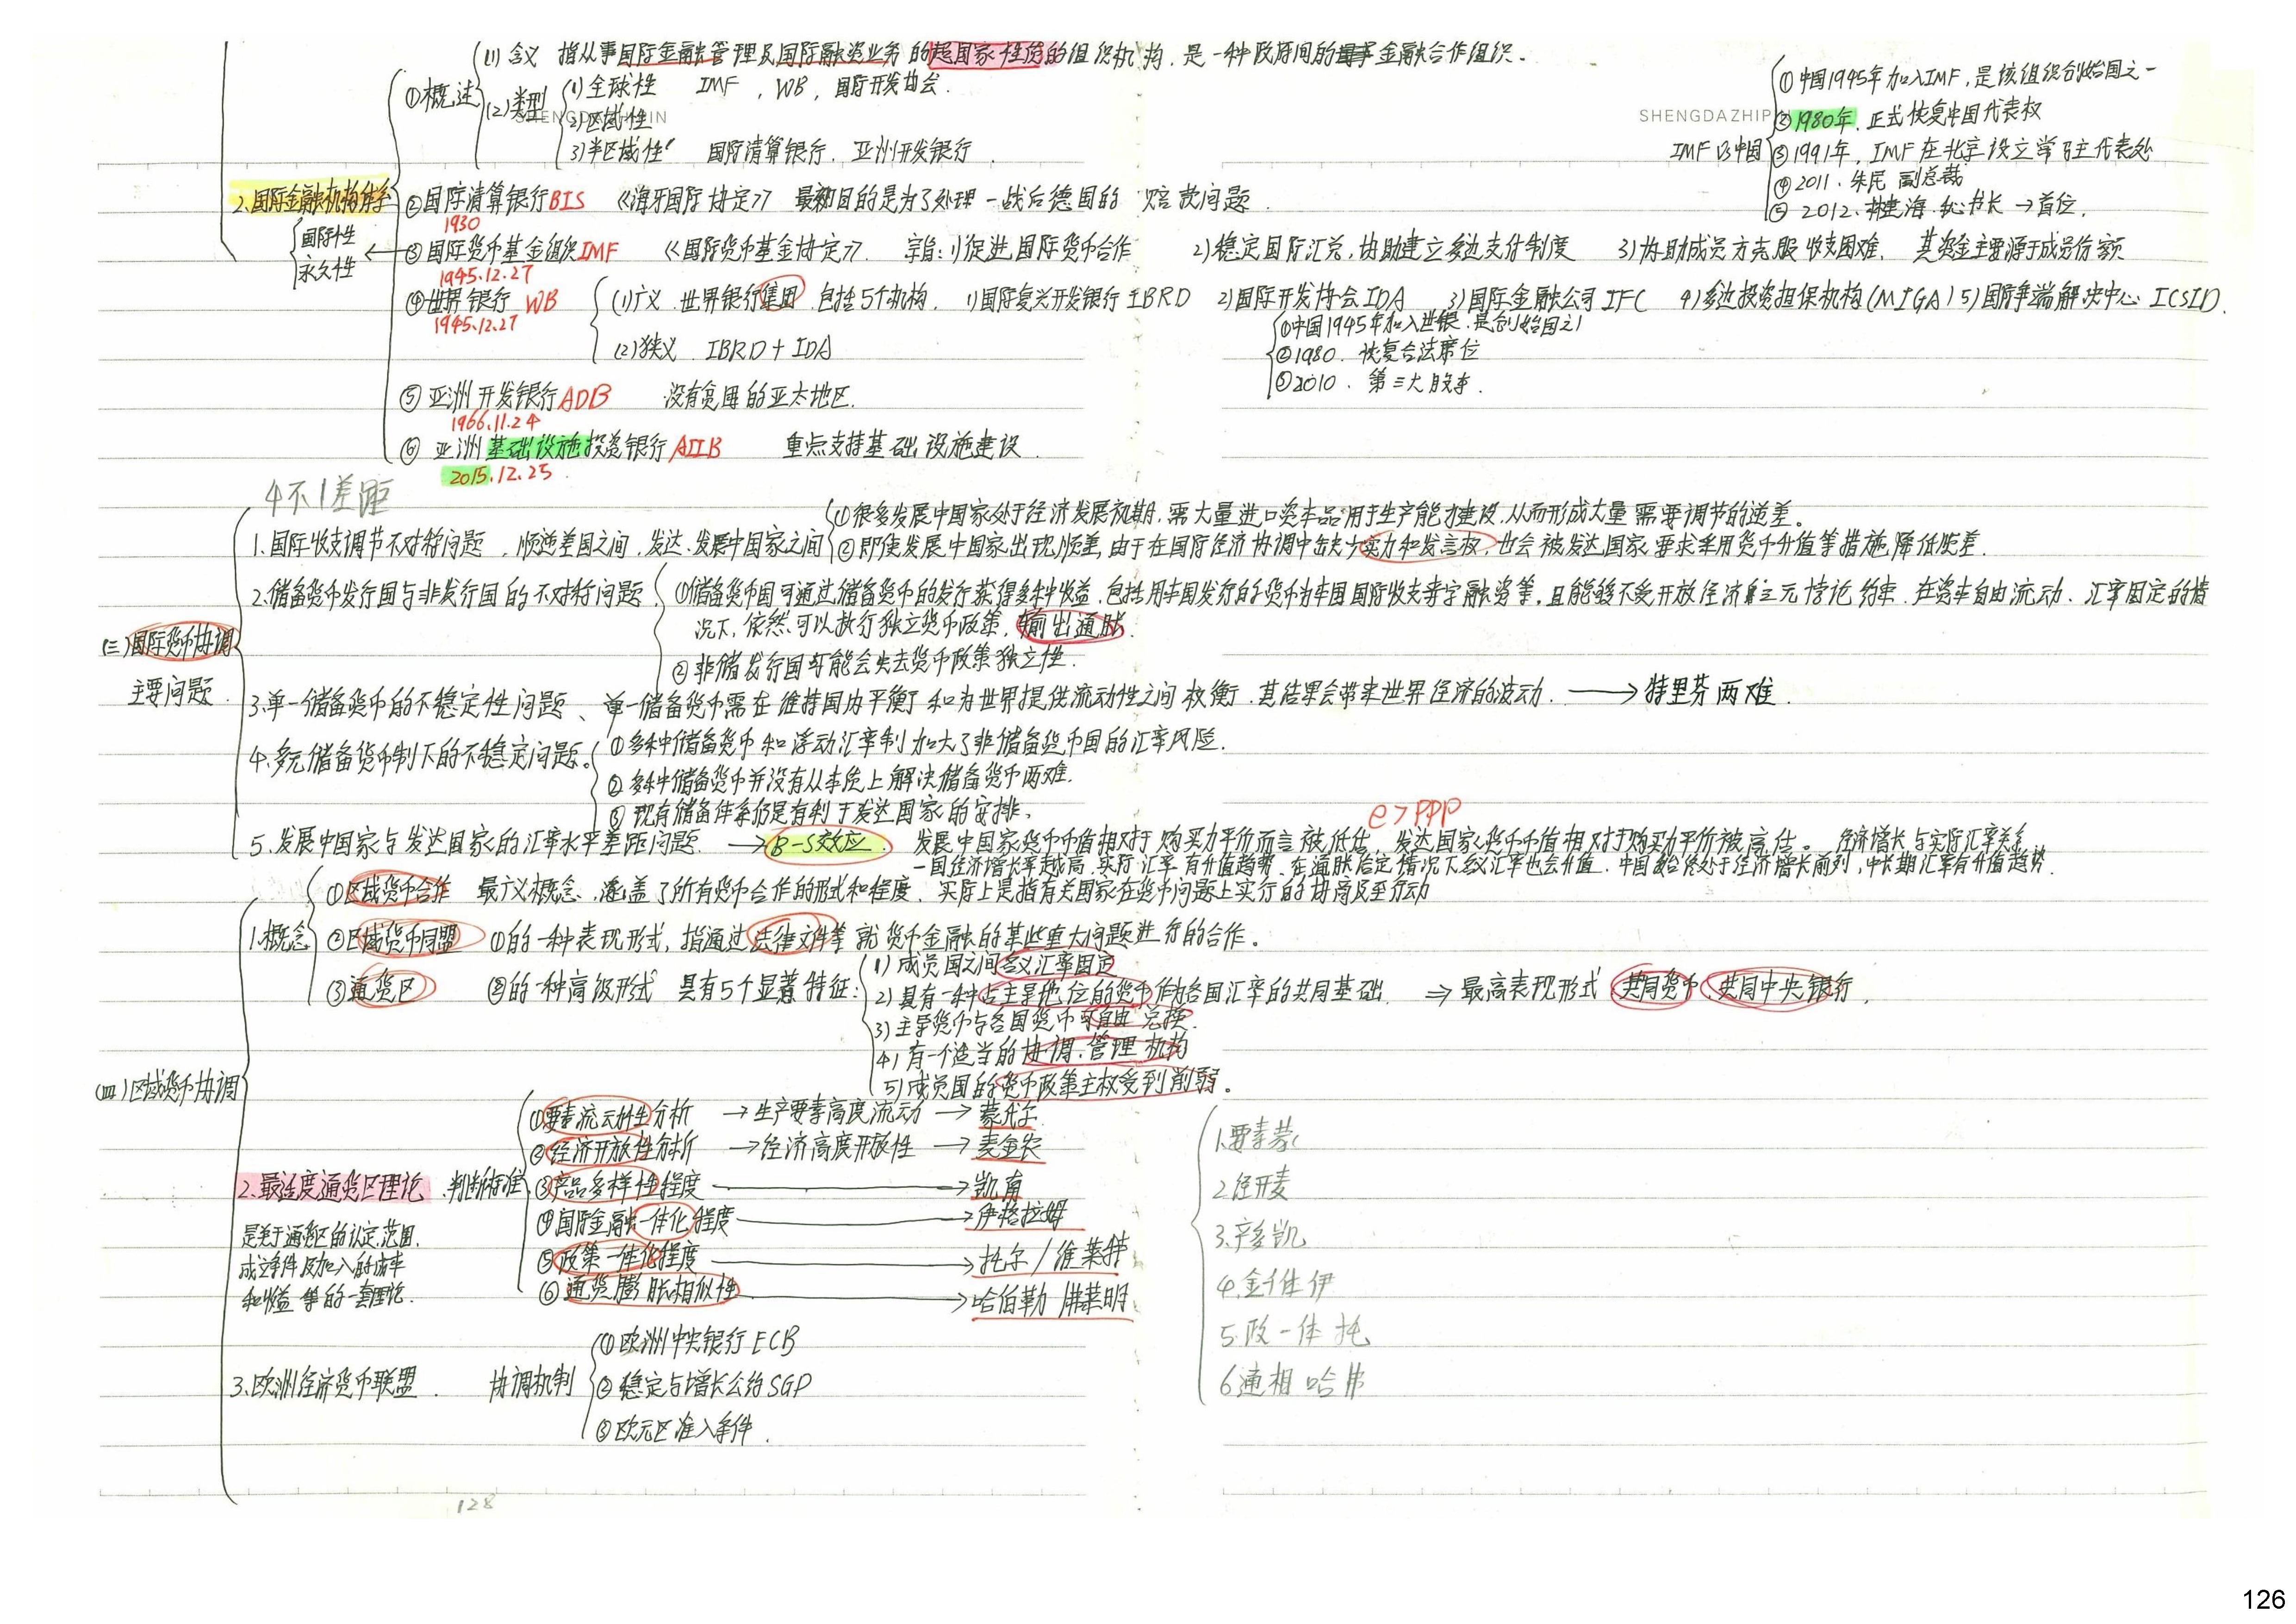 (1) 含义 指从事国际金融管理及国际融资业务的超国家性质的组织机构,是一种政府间的金融合作组织.
①概述
(2)类型
1)全球性 IMF,WB,国际开发协会.
2)区域性
3)半区域性 国际清算银行.亚洲开发银行.
SHENGDAZHIPIN
SHENGDAZHIPIN
IMF与中国
①中国1945年加入IMF,是该组织创始国之一
②1980年.正式恢复中国代表权
③1991年,IMF在北京设立常驻代表处
④2011.朱民 副总裁
⑤2012.林建海.秘书长→首位.
2.国际金融机构体系
国际性
永久性
②国际清算银行BIS 《海牙国际协定》 最初目的是为了处理一战后德国的赔款问题.
1930
③国际货币基金组织IMF 《国际货币基金协定》. 宗旨:1)促进国际货币合作 2)稳定国际汇兑,协助建立多边支付制度 3)协助成员方克服收支困难. 其资金主要源于成员份额
1945.12.27
④世界银行WB
1945.12.27
(1)广义.世界银行集团.包括5个机构. 1)国际复兴开发银行IBRD 2)国际开发协会IDA 3)国际金融公司IFC 4)多边投资担保机构(MIGA)5)国际争端解决中心ICSID.
(2)狭义.IBRD+IDA
①中国1945年加入世银.是创始国之1
②1980.恢复合法席位
③2010.第三大股东.
⑤亚洲开发银行ADB 没有贫困的亚太地区.
1966.11.24
⑥亚洲基础设施投资银行AIIB 重点支持基础设施建设.
2015.12.25
4不1差距
(三)国际货币协调
主要问题.
1.国际收支调节不对称问题,顺逆差国之间,发达、发展中国家之间
①很多发展中国家处于经济发展初期.需大量进口资本品用于生产能力建设.从而形成大量需要调节的逆差。
②即使发展中国家出现顺差,由于在国际经济协调中缺少实力和发言权,也会被发达国家要求采用货币升值等措施降低顺差.
2.储备货币发行国与非发行国的不对称问题
①储备货币国可通过储备货币的发行获得多种收益.包括用本国发行的货币为本国国际收支赤字融资等.且能够不受开放经济三元悖论约束.在资本自由流动、汇率固定的情
况下,依然可以执行独立货币政策,输出通胀.
②非储发行国可能会失去货币政策独立性.
3.单一储备货币的不稳定性问题、单一储备货币需在维持国内平衡和为世界提供流动性之间权衡.其结果会带来世界经济的波动.→特里芬两难.
4.多元储备货币制下的不稳定问题。
①多种储备货币和浮动汇率制加大了非储备货币国的汇率风险.
②多种储备货币并没有从本质上解决储备货币两难.
③现有储备体系仍是有利于发达国家的安排.
e>PPP
5.发展中国家与发达国家的汇率水平差距问题. →B-S效应. 发展中国家货币币值相对于购买力平价而言被低估,发达国家货币币值相对于购买力平价被高估。 经济增长与实际汇率关系
一国经济增长率越高.实际汇率有升值趋势.在通胀给定情况下名义汇率也会升值.中国始终处于经济增长前列,中长期汇率有升值趋势.
(四)区域货币协调
1.概念
①区域货币合作 最广义概念.涵盖了所有货币合作的形式和程度.实际上是指有关国家在货币问题上实行的协商及至行动
②区域货币同盟 ①的一种表现形式,指通过法律文件等就货币金融的某些重大问题进行的合作。
③通货区 ②的一种高级形式 具有5个显著特征:
1)成员国之间名义汇率固定
2)具有一种占主导地位的货币作为各国汇率的共同基础. ⇒最高表现形式 共同货币、共同中央银行.
3)主导货币与各国货币可自由兑换.
4)有一个适当的协调、管理机构
5)成员国的货币政策主权受到削弱。
2.最适度通货区理论.判断标准
是关于通货区的认定.范围.
成立条件及加入的成本
和收益等的一套理论.
①要素流动性分析 →生产要素高度流动→蒙代尔
②经济开放性分析 →经济高度开放性→麦金农
③产品多样性程度→凯南
④国际金融一体化程度→伊格拉姆
⑤政策一体化程度→托尔/维莱特
⑥通货膨胀相似性→哈伯勒 佛莱明.
1.要素蒙
2.经开麦
3.产多凯
4.金体伊
5.政一体托
6.通相哈弗
3.欧洲经济货币联盟. 协调机制
①欧洲中央银行ECB
②稳定与增长公约SGP
③欧元区准入条件.
128
126